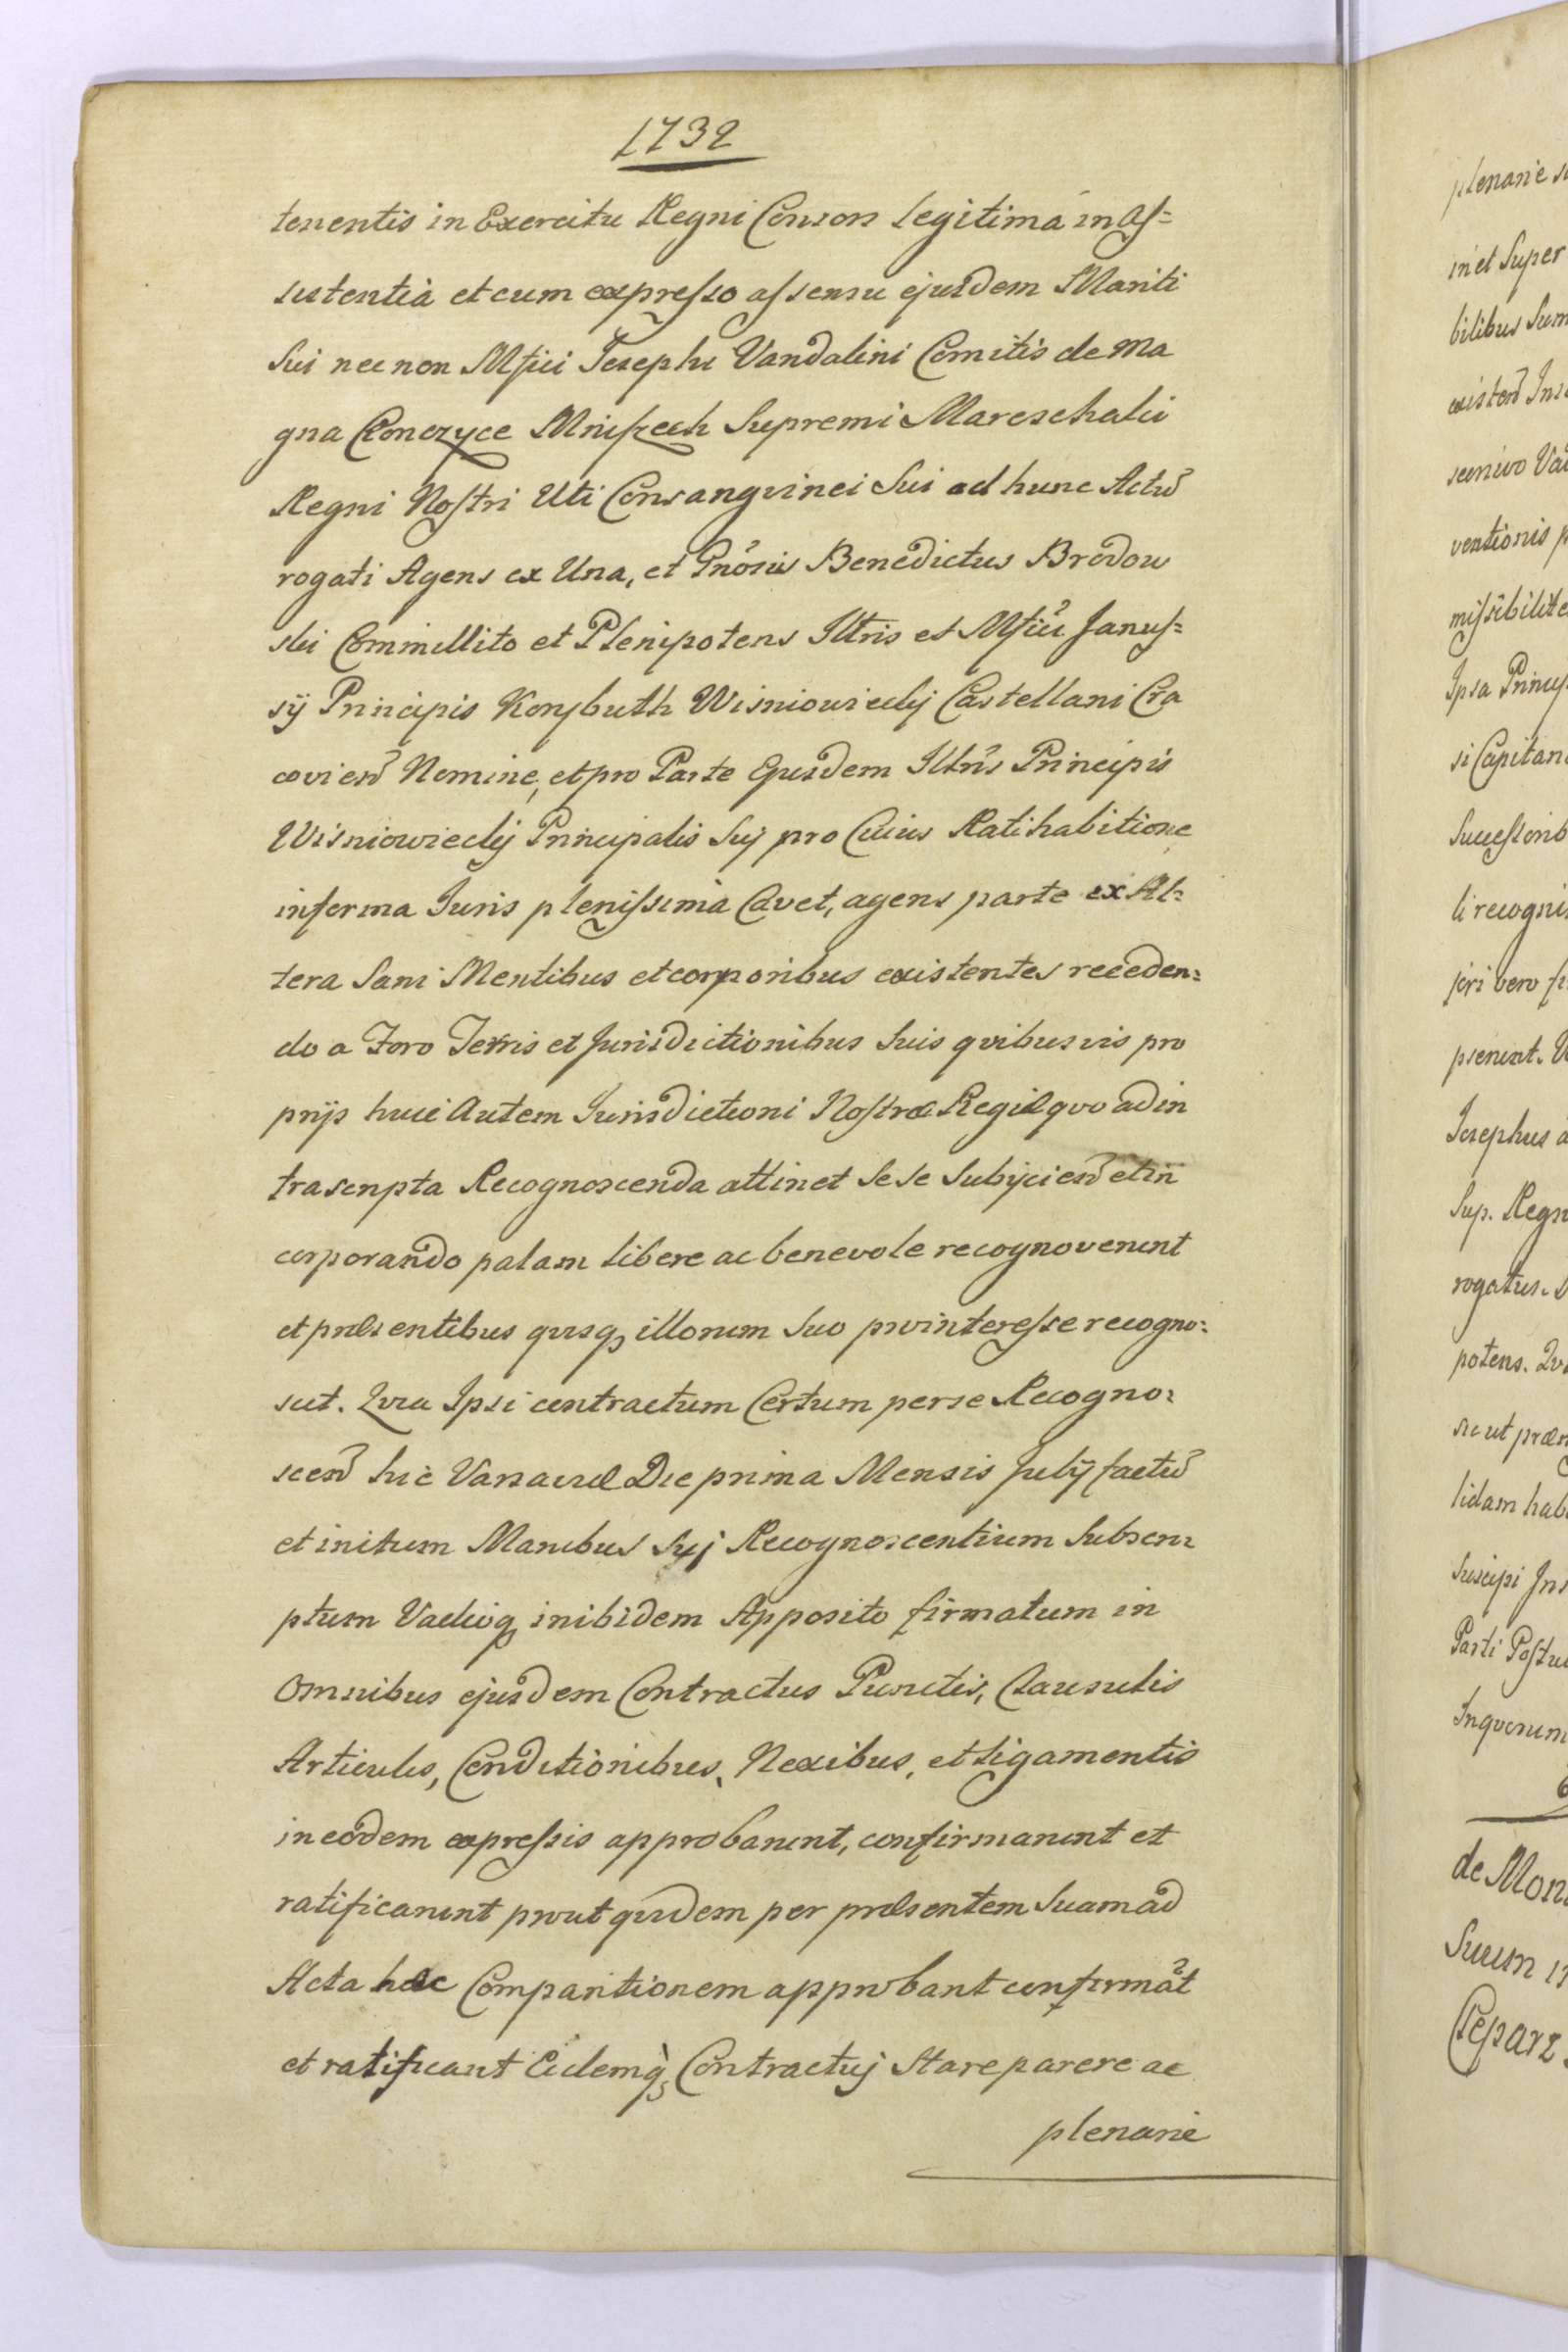 1732
tenentis in Exercitu Regni Consors Legitima in Aſ=
sistentia et cum expreſso aſsensu ejusdem Mariti
Sui nec non Mſici Josephi Vandalini Comitis de Ma
gna Konczyce Mniſzech Supremi Mareschalci
Regni Noſtri Uti Consangvinei Sui ad hunc Actũ
rogati Agens ex Una, et Gnõsus Benedictus Brodow
ski Commillito et Plenipotens Illtris et Mſici Januſ=
sÿ Principis Korybuth Wisniowiecky Castellani Cra
covieñ Nomine, et pro Parte Ejusdem Illtris Principis
Wisniowiecky Principalis Suj pro Cuius Ratihabitione
in forma Juris pleniſsima Cavet, agens parte ex Al=
tera Sani Mentibus et corporibus existentes receden=
do a Foro Terris et Jurisdictionibus Suis qvibusvis pro
prijs huic Autem Jurisdictioni Noſtræ Regiæ qvo ad in
trascripta Recognoscenda attinet Sese Subijcieñ et in
corporando palam libere ac benevole recognoverunt
et præsentibus qvisq illorum Suo pro intereſse recogno=
scit. Qvia Ipsi contractum Certum per se Recogno=
sceñ hic Varsaviæ Die prima Mensis Julÿ factũ
et initum Manibus Suj Recognoscentium Subscri=
ptum Vadioq inibidem Apposito firmatum in
Omnibus ejusdem Contractus Punctis, Clausulis
Articulis, Conditionibus, Nexibus, et Ligamentis
in eodem expreſsis approbarunt, confirmarunt et
ratificarunt prout qvidem per præsentem Suam ad
Acta hæc Comparitionem approbant confirmãt
et ratificant Eidemq Contractuj Stare parere ac
plenarie
plenarie
in et Super
bilibus Sum
ventionis
Ipsa
si Capitan
li recogni
Josephus
Sup. Regn
rogatus.
potens. Qv
sic ut præ
lidam
Suscipi
Parti Poſtu
de
Suum